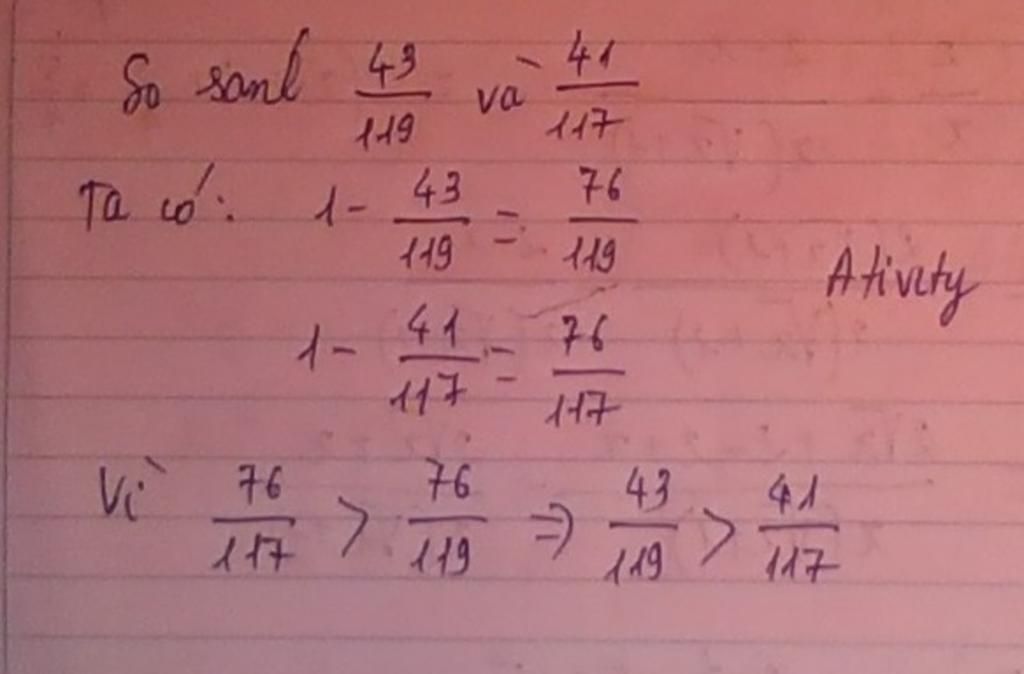 So sanh 43/119 và 41/117
Ta có: 1 - 43/119 = 76/119
Ativity
1 - 41/117 = 76/117
Vì 76/117 > 76/119 => 43/119 > 41/117